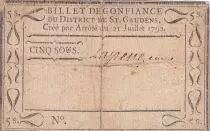 BILLET DE CONFIANCE
DU DISTRICT DE St. GAUDENS,
Créé par Arrêté du 21 Juillet 1792.
CINQ SOUS.
5 s. N°. 5 s.